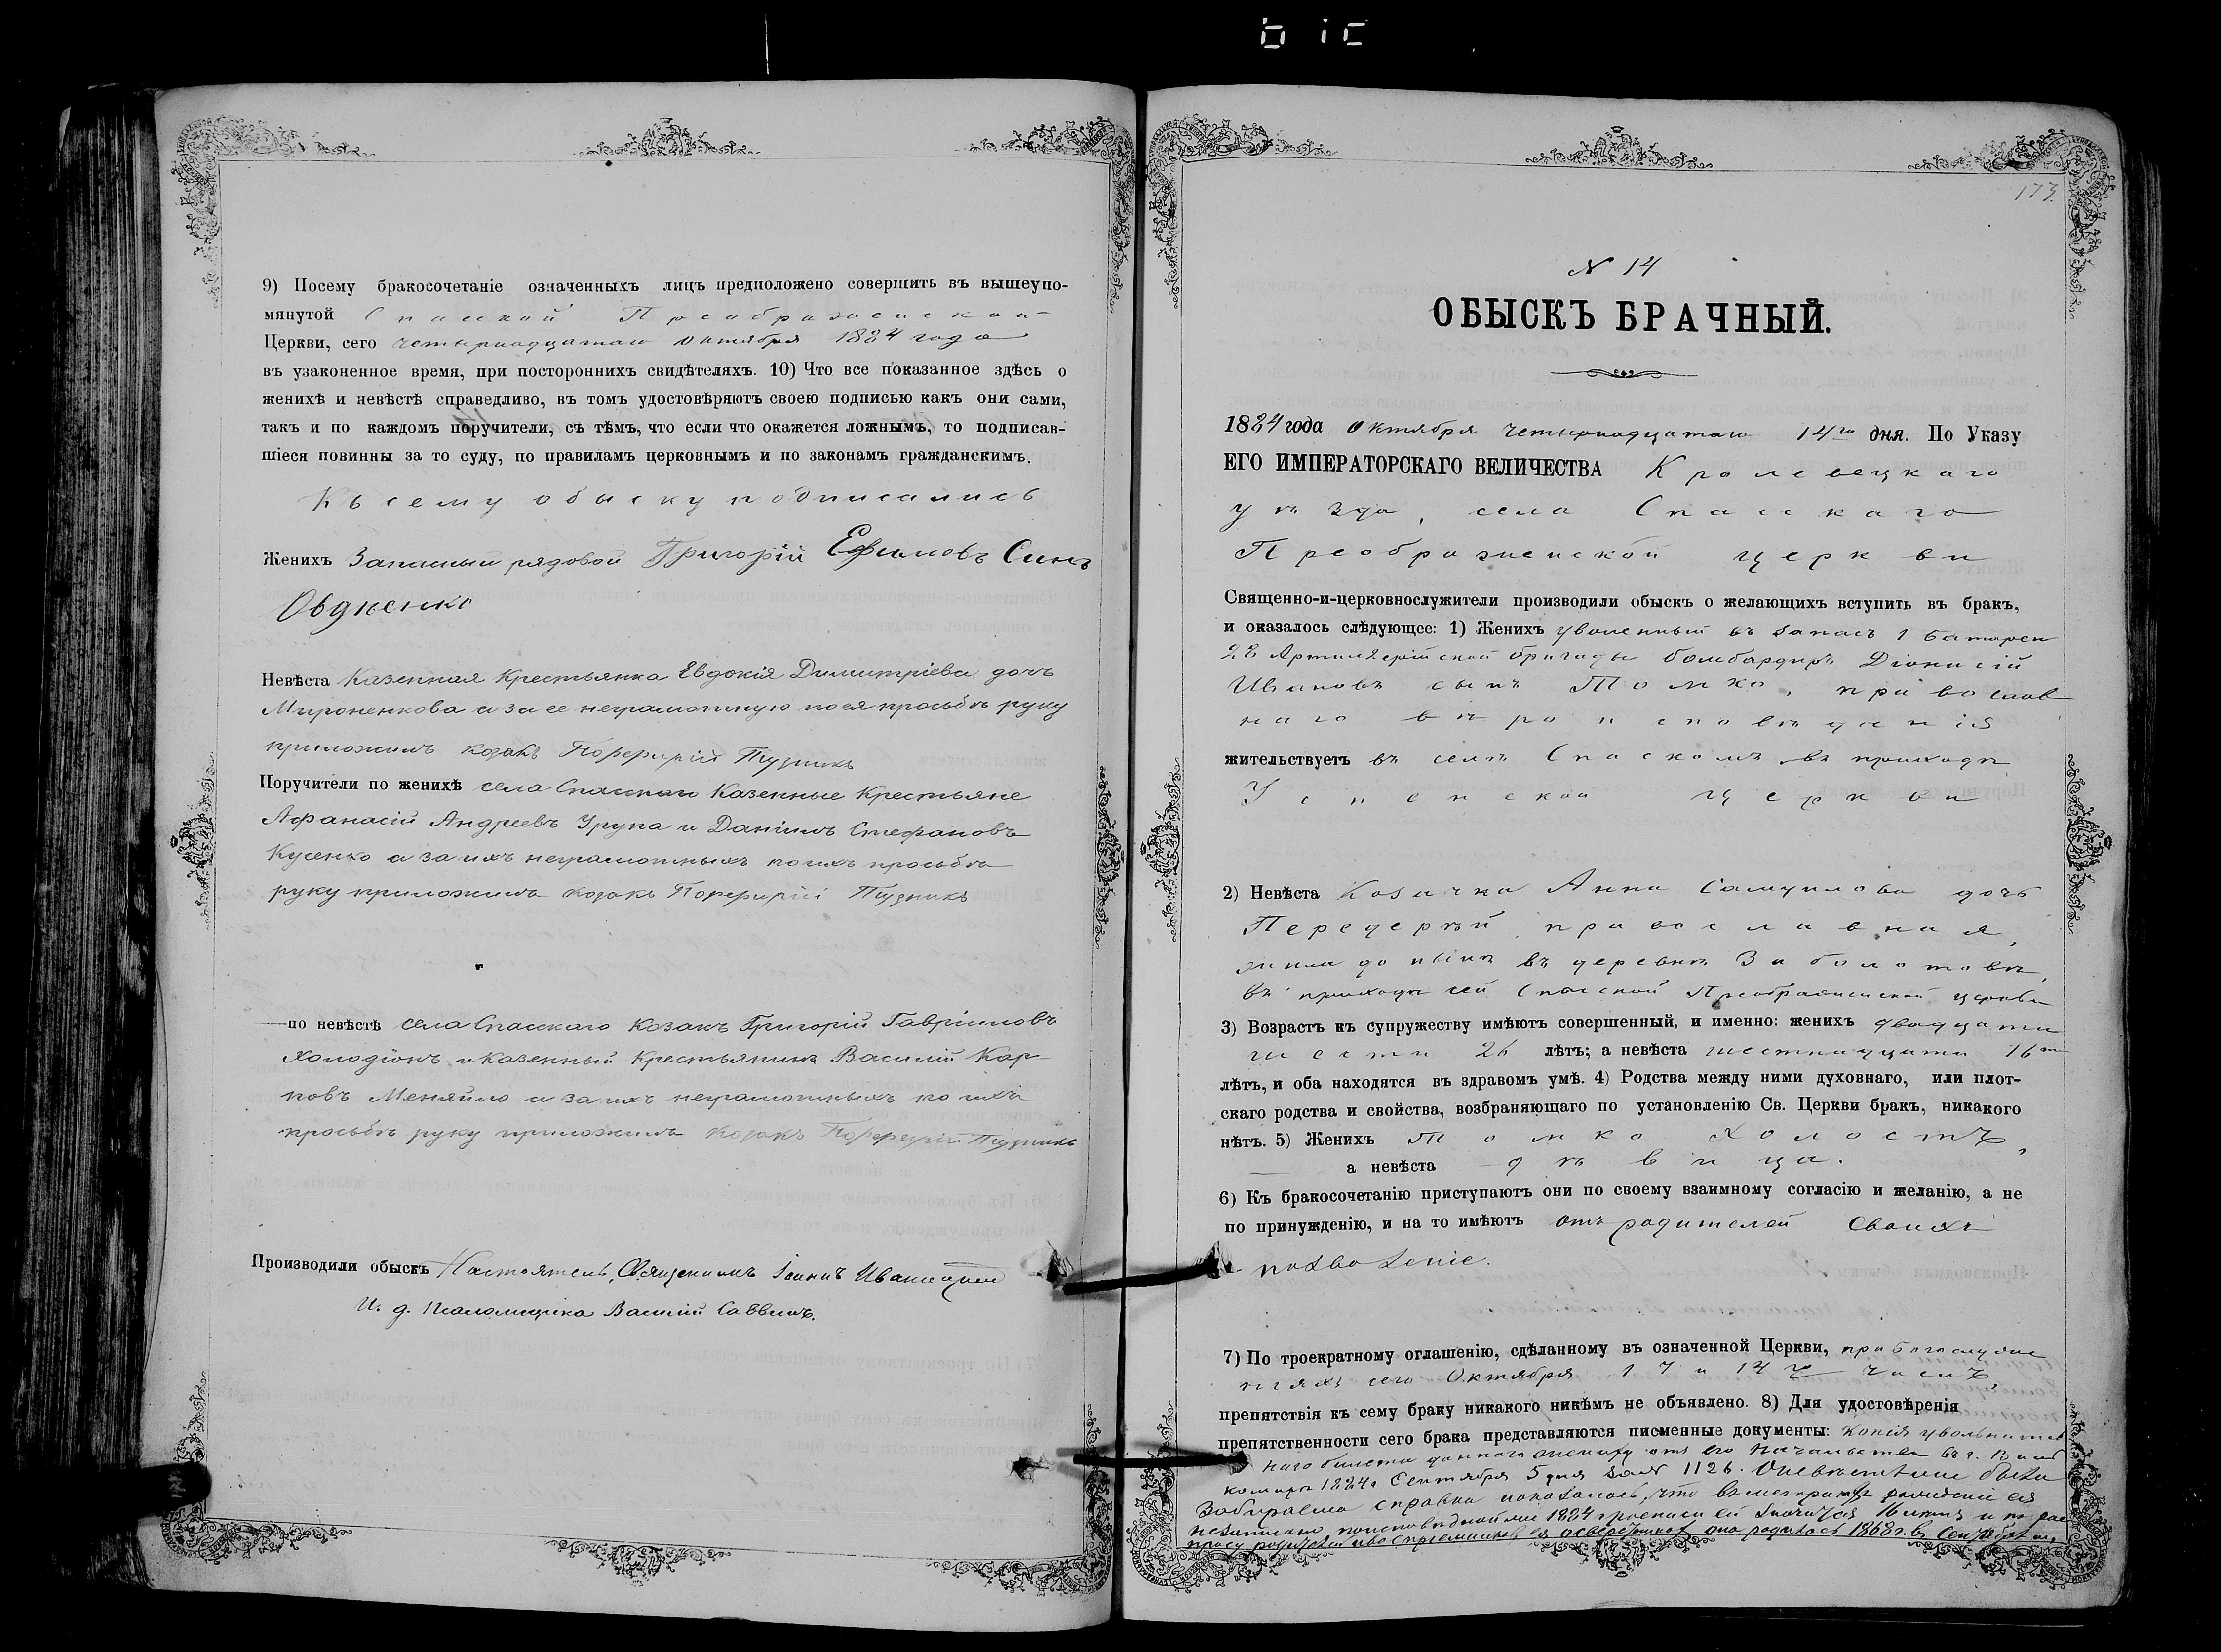 9) Посему бракосочетаніе означенныхъ лицъ предположено совершить въ вышеупо-
мянутой Спасской Преображенской
Церкви, сего четырнадцатаго октября 1884 года
въ узаконенное время, при постороннихъ свидѣтеляхъ. 10) Что все показанное здѣсь о
женихѣ и невѣстѣ справедливо, въ томъ удостовѣряютъ своею подписью какъ они сами,
такъ и по каждомъ поручители, съ тѣмъ, что если что окажется ложнымъ, то подписав-
шіеся повинны за то суду, по правиламъ церковнымъ и по законамъ гражданскимъ.
Къ сему обыску подписались
Женихъ Запасный рядовой Григорій Ефимовъ Синъ
Овдѣенко
Невѣста Казенная Крестьянка Евдокія Димитріева дочь
Мироненкова а за ее неграмотную по ея просьбѣ руку
приложилъ козакъ Порфирій Пузникъ
Поручители по женихѣ села Спасскаго Казенные Крестьяне
Афанасій Андреевъ Урупа и Даніилъ Стефановъ
Кусенко а за ихъ неграмотныхъ по ихъ просьбѣ
руку приложилъ козакъ Порфирій Пузникъ
—по невѣстѣ села Спасскаго Козакъ Григорій Гавріиловъ
Холодіонъ и казенный Крестьянинъ Василій Кар-
повъ Меняйло а за ихъ неграмотныхъ по ихъ
просьбѣ руку приложилъ козакъ Порфирій Пузникъ
Производили обыскъ Настоятель, Священникъ Іоаннъ
И. д. Псаломщика Василій Саввичъ.
173
N 14
ОБЫСКЪ БРАЧНЫЙ.
1884 года Октября четырнадцатаго 14го дня. По Указу
ЕГО ИМПЕРАТОРСКАГО ВЕЛИЧЕСТВА Кролевецкаго
уѣзда, села Спасскаго
Преображенской церкви
Священно-и-церковнослужители производили обыскъ о желающихъ вступить въ бракъ,
и оказалось слѣдующее: 1) Женихъ уволенный въ запасъ 1 батареи
28 Артиллерійской бригады бомбардиръ Діонисій
Ивановъ сынъ Томко, православ
наго вѣроисповѣданія
жительствуетъ въ селѣ Спаскомъ въ приходѣ
Успенской церкви
2) Невѣста Козачка Анна Самуилова дочь
Передерѣй, православная,
жила до нынѣ въ деревнѣ Заболотовѣ,
въ приходѣ сей Спасской Преображенской церкви
3) Возрастъ къ супружеству имѣютъ совершенный, и именно: женихъ двадцати
шести 26 лѣтъ; а невѣста шестнадцати 16ти
лѣтъ, и оба находятся въ здравомъ умѣ. 4) Родства между ними духовнаго, или плот-
скаго родства и свойства, возбраняющаго по установленію Св. Церкви бракъ, никакого
нѣтъ. 5) Женихъ Томко холостъ,
а невѣста дѣвица.
6) Къ бракосочетанію приступаютъ они по своему взаимному согласію и желанію, а не
по принужденію, и на то имѣютъ отъ родителей своихъ
позволеніе.
7) По троекратному оглашенію, сдѣланному въ означенной Церкви, при богослуже
ніяхъ сего Октября 1 7 и 14го чиселъ,
препятствія къ сему браку никакого никѣмъ не объявлено. 8) Для удостовѣренія
препятственности сего брака представляются писменные документы: копія увольнитель
наго билета даннаго жениху отъ его начальства въ г.
1884 г. Сентября 5 дня за № 1126. О невѣстѣ были
забираемы справки показалось, что въ метрикахъ рожденіе ея
незаписано, по исповѣдной же 1884 г росписи ей значится 16 лѣтъ и по рас
просу родителей она родилась 1868 г. въ Сентябрѣ